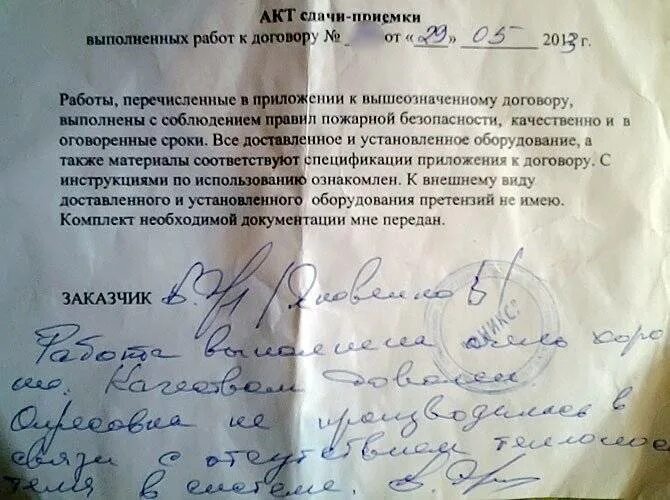 АКТ сдачи-приемки
выполненных работ к договору № от «29» 05 2013 г.
Работы, перечисленные в приложении к вышеозначенному договору,
выполнены с соблюдением правил пожарной безопасности, качественно и в
оговоренные сроки. Все доставленное и установленное оборудование, а
также материалы соответствуют спецификации приложения к договору. С
инструкциями по использованию ознакомлен. К внешнему виду
доставленного и установленного оборудования претензий не имею.
Комплект необходимой документации мне передан.
ЗАКАЗЧИК /Яковенко В/
НИКС"
Работа выполнена хоро
шо. Качеством доволен.
Опресовка не производилась в
связи с отсутствием теплоноси
теля в системе.